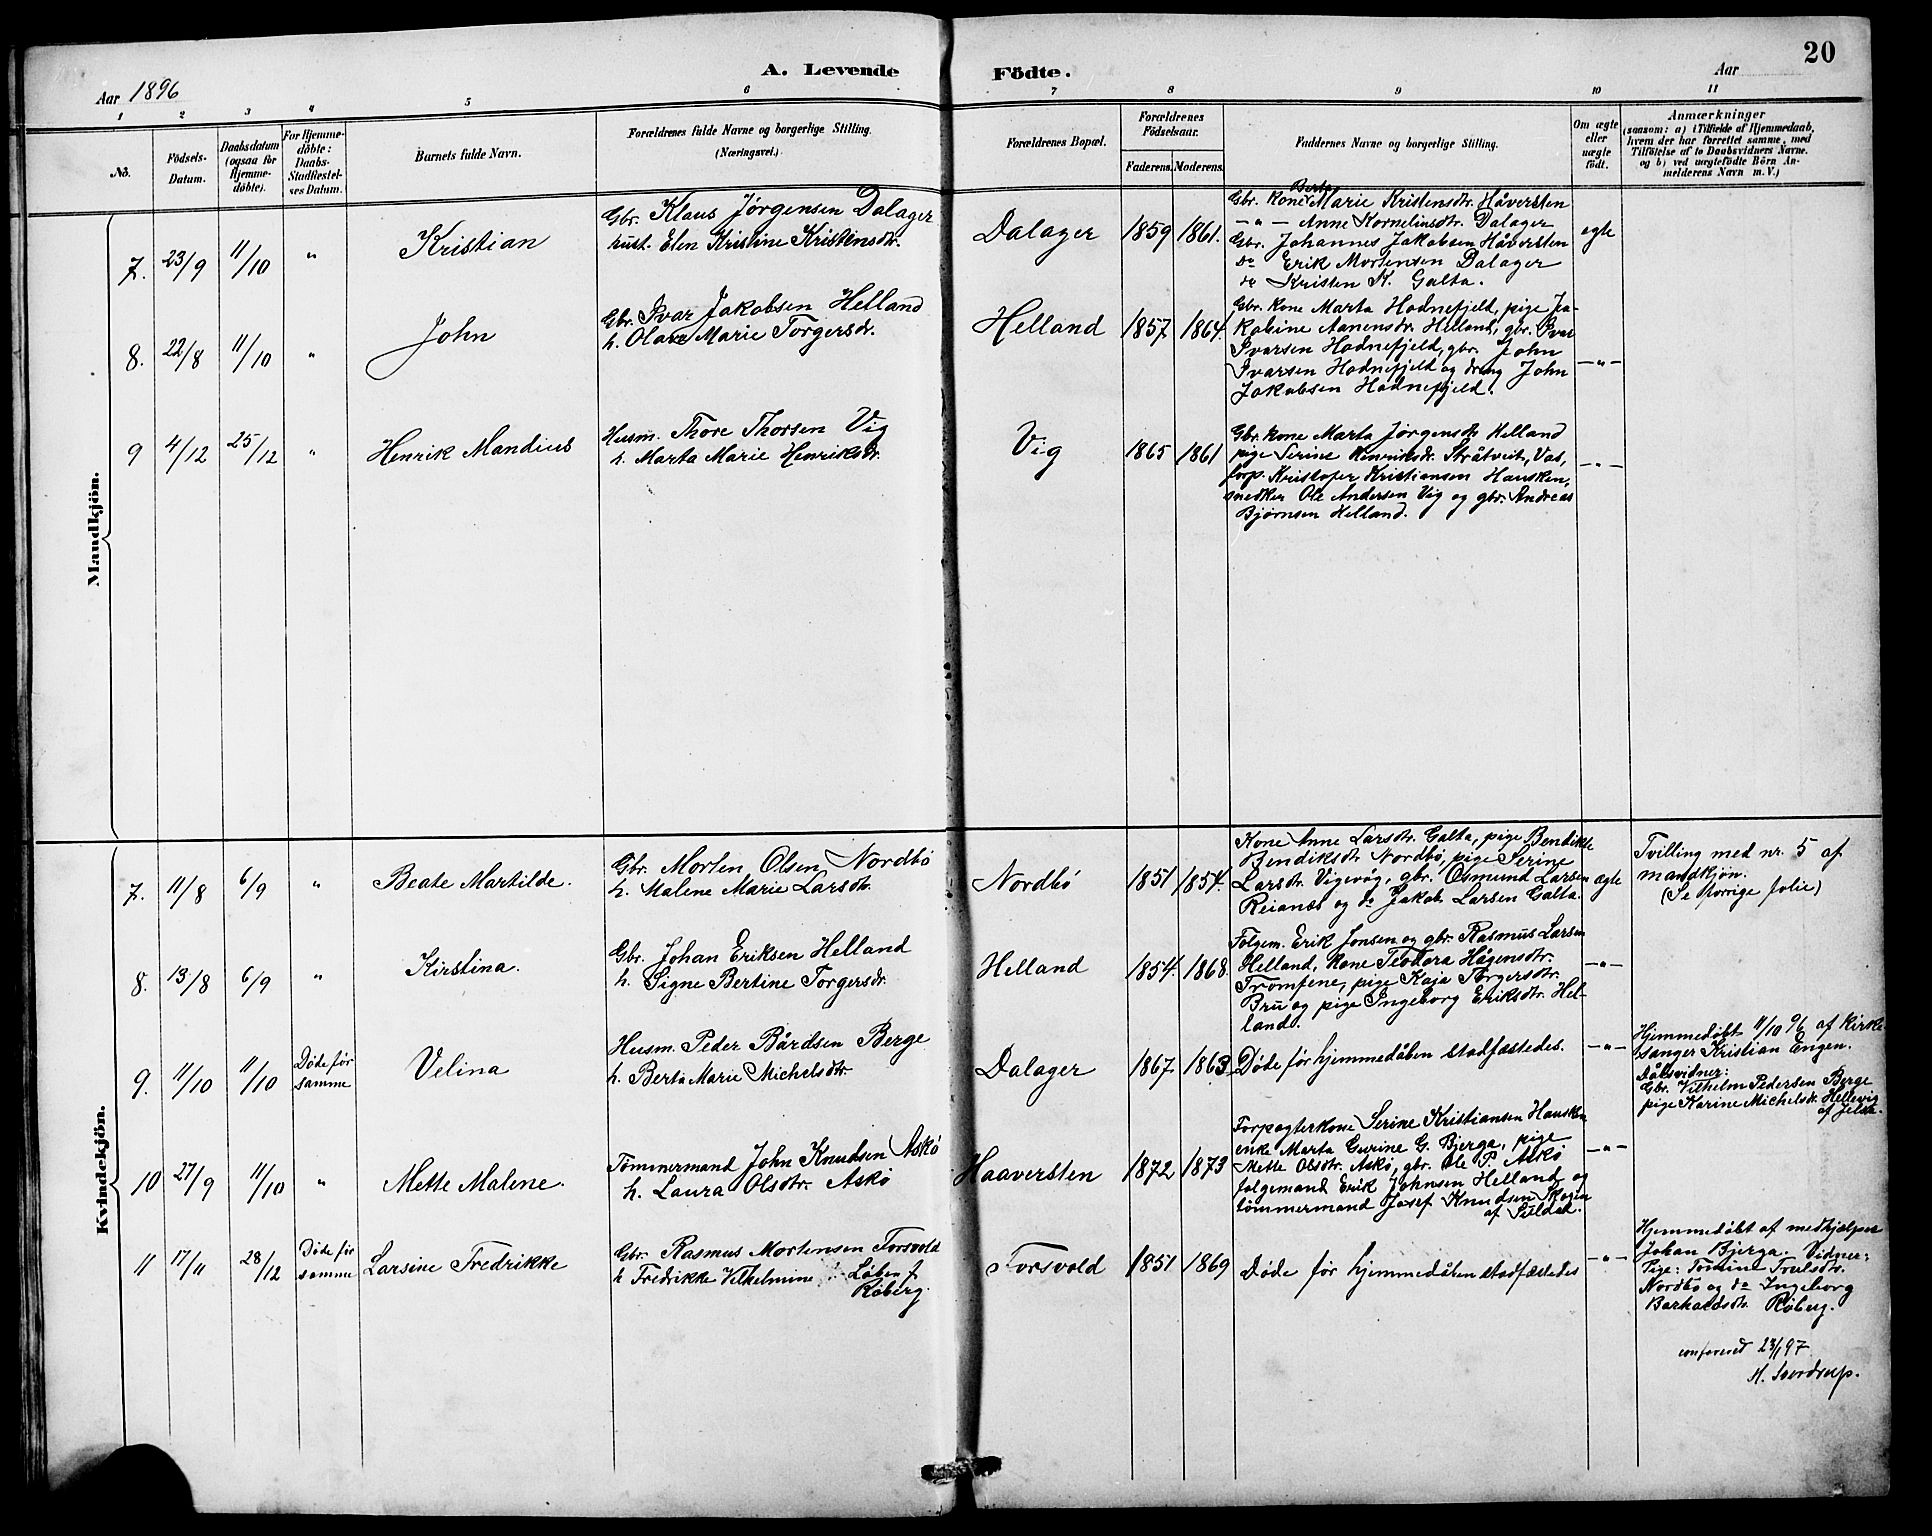 20
A. Levende Födte.
Aar 1896
Aar
1 2 3 4 5 6 7 8 9 10 11
No.
Födsels-Datum.
Daabsdatum (ogsaa for Hjemme-döbte).
For Hjemme-döbte: Daabs-Stadfæstel-ses Datum.
Barnets fulde Navn.
Forældrenes fulde Navne og borgerlige Stilling. (Næringsvei.)
Forældrenes Bopæl.
Forældrenes Födselsaar.
Faderens. Moderens.
Faddernes Navne og borgerlige Stilling.
Om ægte eller uægte födt.
Anmærkninger
(saasom: a) i Tilfælde af Hjemmedaab, hvem der har forrettet samme, med Tilföielse af to Daabsvidners Navne, og b) ved uægtefödte Börn An-melderens Navn m. V.)
Mandkjön.
7. 23/9 11/10 " Kristian
Gbr. Klaus Jørgensen Dalager
hust. Elen Kristine Kristensdtr.
Dalager 1859 1861.
Gbr. kone Berta Marie Kristensdtr. Håversten
— " — Anne Kornelinsdtr. Dalager
Gbr. Johannes Jakobsen Håversten
do Erik Mortensen Dalager
do Kristen K. Galta.
ægte
8. 22/8 11/10 " John
Gbr. Ivar Jakobsen Helland
h. Olava Marie Torgersdr.
Helland 1857 1864.
Gbr. kone Marta Hodnefjeld, pige Ja-
kobine Aanensdr. Helland, gbr. Ivar
Ivarsen Hodnefjeld, gbr. John
Ivarsen Hodnefjeld og dreng John
Jakobsen Hodnefjeld.
— " —
9 4/12 25/12 " Henrik Mandius
Husm. Thore Thorsen Vig
h. Marta Marie Henriksdr.
Vig 1865 1861
Gbr. kone Marta Jørgensdr Helland
pige Serine Henriksdr. Stråtveit, Vas,
forp. Kristofer Kristiansen Hausken,
snedker Ole Andersen Vig og gbr. Andreas
Bjørnsen Helland.
— " —
Kvindekjön.
7. 11/8 6/9 " Beate Martilde.
Gbr. Morten Olsen Nordbö
h. Malene Marie Larsdtr.
Nordbö 1851 1854.
Kone Anne Larsdtr. Galta, pige Bendikte
Bendiksdtr Nordbö, pige Serine
Larsdtr. Vigevåg, gbr. Osmund Larsen
Reianes og do Jakob Larsen Galta.
ægte
Tvilling med nr. 5 af
mandkjön.
(Se forrige folie)
8. 13/8 6/9 " Kirstina.
Gbr. Johan Eriksen Helland
h. Signe Bertine Torgersdr.
Helland 1854. 1868.
Følgem. Erik Jonsen og gbr. Rasmus Larsen
Helland, kone Teodora Hågensdtr.
Tromfene, pige Kaja Torgersdtr.
Bru og pige Ingeborg Eriksdtr. Hel-
land.
— " —
9. 11/10 11/10 Døde før samme Velina
Husm. Peder Bårdsen Berge
h. Berta Marie Michelsdtr.
Dalager 1867 1863
Døde før hjemmedåben stadfæstedes.
— " —
Hjemmedøbt 11/10 96 af kirke-
sanger Kristian Engen.
Dåbsvidner:
Gbr. Vilhelm Pedersen Berge
pige Karine Michelsdr. Hellevig
af Jelsa.
10 27/9 11/10 " Mette Malene.
Tømmermand John Knudsen Askö
h. Laura Olsdtr. Askö
Haaversten 1872 1873
Forpagterkone Serine Kristiansen Hausken
enke Marta Gurine G. Bjerga, pige
Mette Olsdtr. Askö, gbr. Ole P. Askö
følgemand Erik Johnsen Helland og
tømmermand Josef Knudsen Skogen
af Suldal.
— " —
11 17/11 28/12 Døde før samme Larsine Fredrikke
Gbr. Rasmus Mortensen Forsvold
h Fredikke Vilhelmine
Röberg.
Forsvold 1851 1869
Døde før hjemmedåben stadfæstedes
— " —
Hjemmedøbt af medhjælper
Johan Bjerga. Vidner:
Pige: Tomine Trulsdtr.
Nordbö og do Ingeborg
Barhardsdtr. Röberg.
confereret 23/1 97
H. Sverdrup.